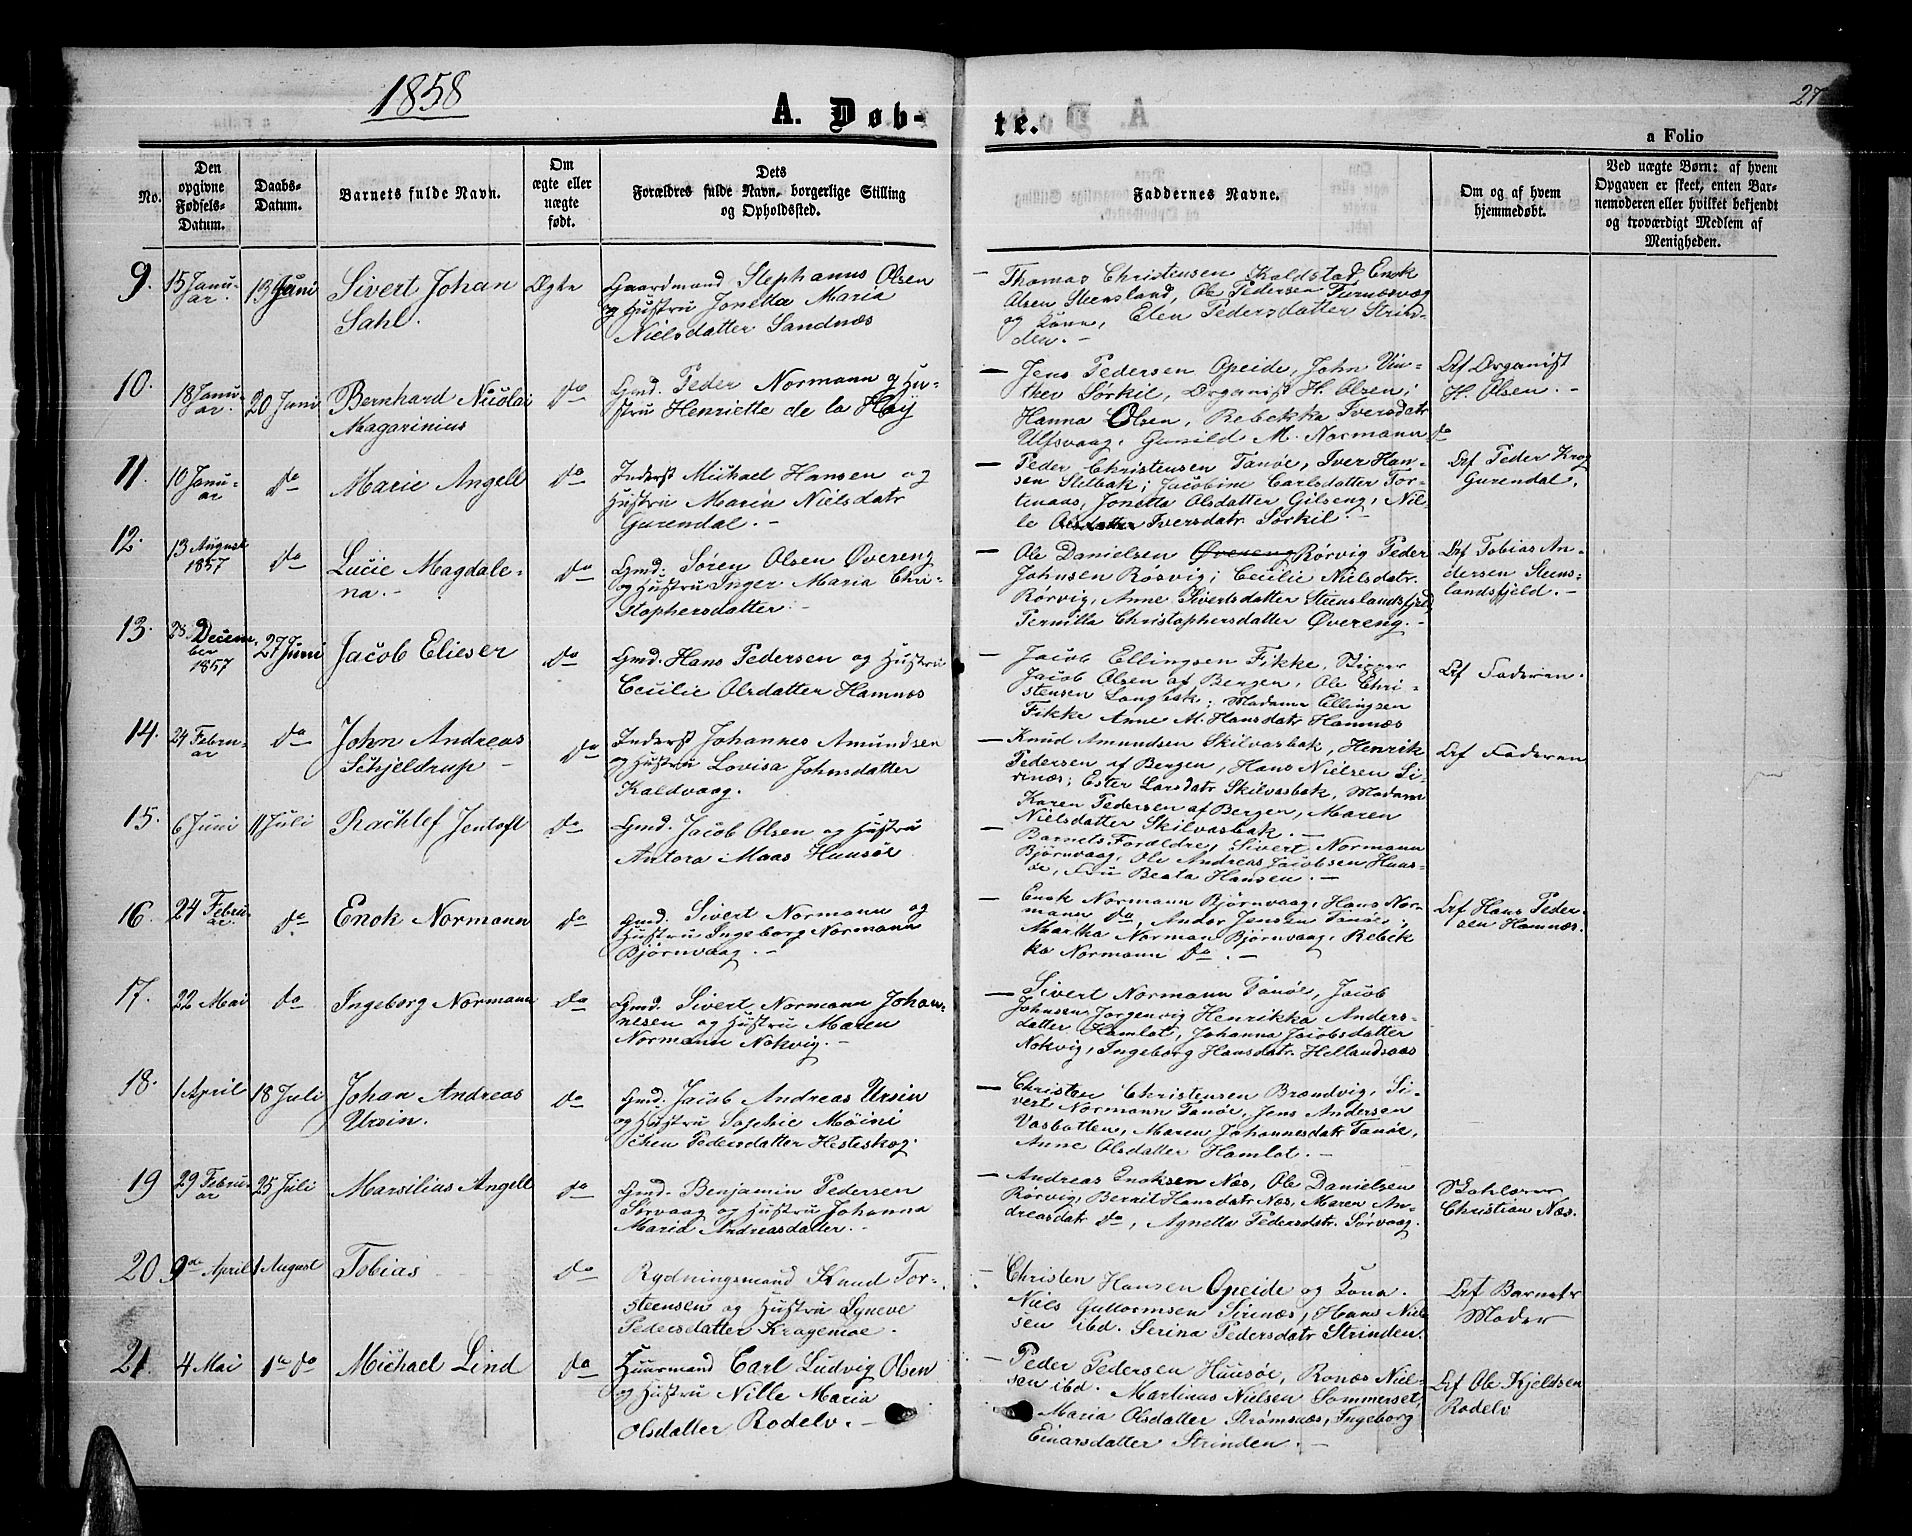 1858
A. Døb-
te.
27
a Folio
No.
Den
opgivne
Fødsels-
Datum.
Daabs-
Datum.
Barnets fulde Navn.
Om
ægte eller
uægte
født.
Dets
Forældres fulde Navn, borgerlige Stilling
og Opholdssted.
Faddernes Navne.
Om og af hvem
hjemmedøbt.
Ved uægte Børn: af hvem
Opgaven er skeet, enten Bar-
nemoderen eller hvilket bekjendt
og troværdigt Medlem af
Menigheden.
9.
15 Janu-
ar.
13 Juni
Sivert Johan
Dahl.
Ægte
Gaardmand Stephanus Olsen
og Hustru Jonetta Maria
Nielsdatter Sandnæs
— Thomas Christensen Kaldstad, Enok
Olsen Steensland, Ole Pedersen Furnæsvæg
og Kone, Elen Pedersdatter Strin-
den. —
10.
18 Janu-
ar.
20 Juni
Bernhard Nicolai
Magarinius
do
Gmd. Peder Normann og Hu-
stru Henriette de la Hay
— Jens Pedersen Opeide, John Vin-
ther Sørkil, Organist H. Olsen;
Hanna Olsen, Rebekka Iversdatr
Ulfsvaag, Gunild M. Normann do
Af Organist
H. Olsen. —
11.
10 Janu-
ar.
do
Marie Angell
do
Inderst Michael Hansen og
Hustru Maria Nielsdatr
Gurendal. —
— Peder Christensen Tanøe, Iver Han-
sen Stilbak; Jacobine Carlsdatter For-
tunaas, Jonetta Olsdatter Gilseng, Nil-
le Olsdatter Iversdatr Sørkil. —
Af Peder Krog
Gurendal.
12.
13 August
1857
do
Lucie Magdale-
na. —
do
Gmd. Søren Olsen Øvereng
og Hustru Inger Maria Chri-
stophersdatter. —
— Ole Danielsen Øvereng Rørvig, Peder
Johnsen Røsvig; Cecilie Nielsdatr.
Rørvig, Anne Sivertsdatter Steenslandsfjeld
Pernilla Christophersdatter Øvereng. —
Af Tobias An-
dersen Steens-
landsfjeld. —
13.
28 Decem-
ber
1857
27 Juni
Jacob Elieser
do
Gmd. Hans Pedersen og Hustru
Cecilie Olsdatter Hamnæs
— Jacob Ellingsen Fikke,
Jacob Olsen af Bergen, Ole Chri-
stensen Langbak; Madame Ellingsen
Fikke Anne M. Hansdatr Hamnæs
Af Faderen.
14.
24 Febru-
ar
do
John Andreas
Schjeldrup —
do
Inderst Johannes Amundsen
og Hustru Lovisa Johnsdatter
Kaldvaag.
— Knud Amundsen Skilvasbak, Henrik
Pedersen af Bergen, Hans Nielsen Si-
rinæs; Ester Larsdatr. Skilvasbak, Madame
Karen Pedersen af Bergen, Maren
Nielsdatter Skilvasbak. —
Af Faderen
15.
6 Juni
11 Juli
Rachlef Jentoft
do
Gmd. Jacob Olsen og Hustru
Antora Maas Huusøe
— Barnets Forældre, Sivert Normann
Bjørnvaag, Ole Andreas Jacobsen Huus-
øe, Fru Beata Hansen. —
16.
24 Febru-
ar.
do
Enok Normann
do
Gmd. Sivert Normann og
Hustru Ingeborg Normann
Bjørnvaag. —
— Enok Normann Bjørnvaag, Hans Nor-
mann do, Andor Jensen Tanøe;
Martha Norman Bjørnvaag, Rebek
ka Normann do. —
Af Hans Peder-
sen Hamnæs.
17.
22 Mai
do
Ingeborg Normann
do
Gmd. Sivert Normann Johan-
nesen og Hustru Maren
Normann Nokvig. —
— Sivert Normann Tanøe, Jacob
Johnsen Jorgenvig Henrikka Anders-
datter Hamlot, Johanna Jacobsdatter
Nokvig, Ingeborg Hansdatr. Hellandsaas
18.
1 April
18 Juli
Johan Andreas
Ursin.
do
Gmd. Jacob Andreas Ursin
og Hustru Sophie Møini
chen Pedersdatter Hesteskog.
— Christen Christensen Brandvig, Si-
vert Normann Tanøe, Jens Andersen
Vasbotten, Maren Johannesdatr Tanøe,
Anne Olsdatter Hamlot. —
19
29 Febru-
ar
25 Juli
Marsilius Angell
do
Gmd. Benjamin Pedersen
Sørvaag og Hustru Johanna
Maria Andreasdatter. —
— Andreas Enoksen Næs, Ole Danielsen
Rørvig, Berait Hansdatr Næs, Maren An-
dreasdatr do, Agnetta Pedersdatr. Sørvaag.
Skolelærer
Christian Næs.
20
9de April
1 August
Tobias
do
Rydningsmand Knud Tor-
steensen og Hustru Syneve
Pedersdatter Kragemoe. —
— Christen Hansen Opeide og Kona.
Niels Guttormsen Sirinæs, Hans Niel
sen ibd. Serina Pedersdatr Strinden.
Af Barnets
Moder
21.
4 Mai
1te do
Michael Lind
do
Huusmand Carl Ludvig Olsen
og Hustru Nille Maria
Olsdatter Rodelv. —
— Peder Pedersen Huusøe, Ronæs Niel-
sen ibd. Martinus Nielsen Sommerset,
Maria Olsdatter Strømsnæs, Ingeborg
Einarsdatter Strinden. —
Af Ole Kjeldsen
Rodelv